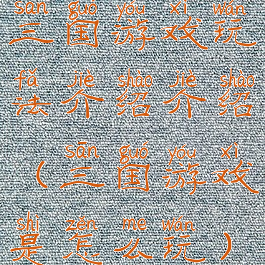 sān guó yóu xì wán
三国游戏玩
fǎ jiè shào jiè shào
法介绍介绍
sān guó yóu xì
（三国游戏
shì zěn me wán
是怎么玩）